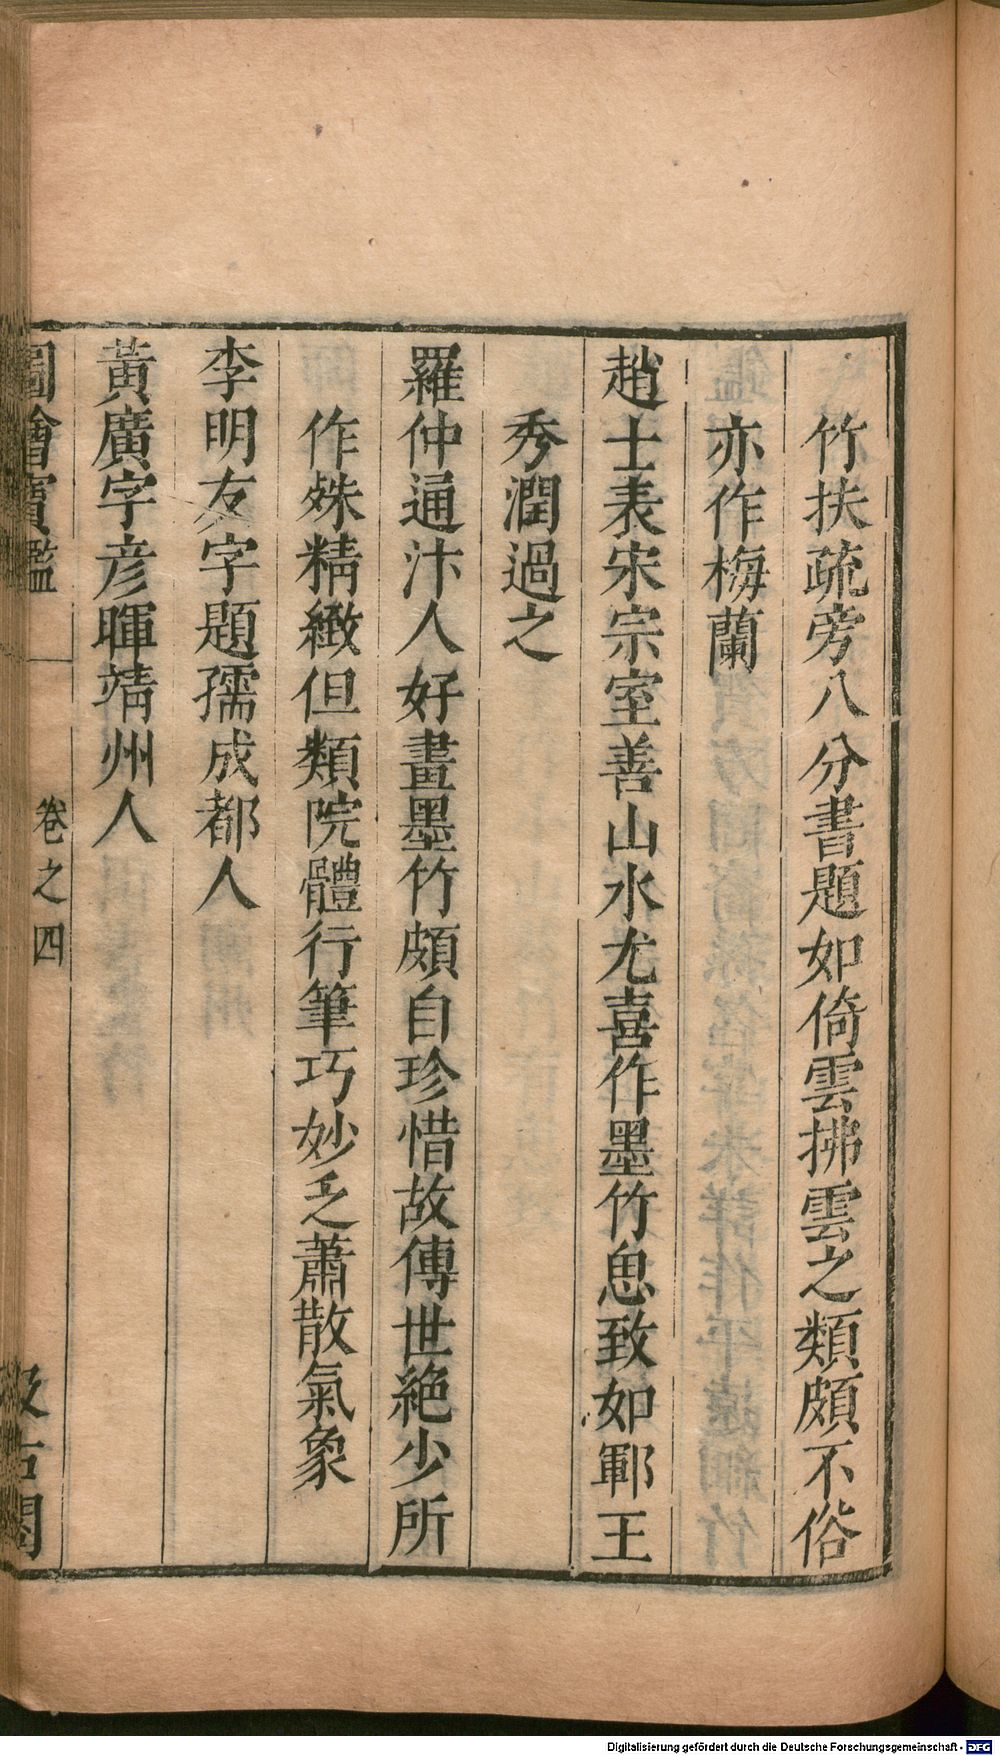 竹扶疏旁八分書題如倚雲拂雲之類頗不俗
亦作梅蘭
趙士表宋宗室善山水尤喜作墨竹思致如鄆王
秀潤過之
羅仲通汴人好畫墨竹頗自珍惜故傳世絕少所
作殊精緻但類院體行筆巧妙乏蕭散氣象
李明友字題孺成都人
黃廣字彥暉靖州人
圖繪寳鑑
卷之四
汲古閣
Digitalisierung gefördert durch die Deutsche Forschungsgemeinschaft - DFG